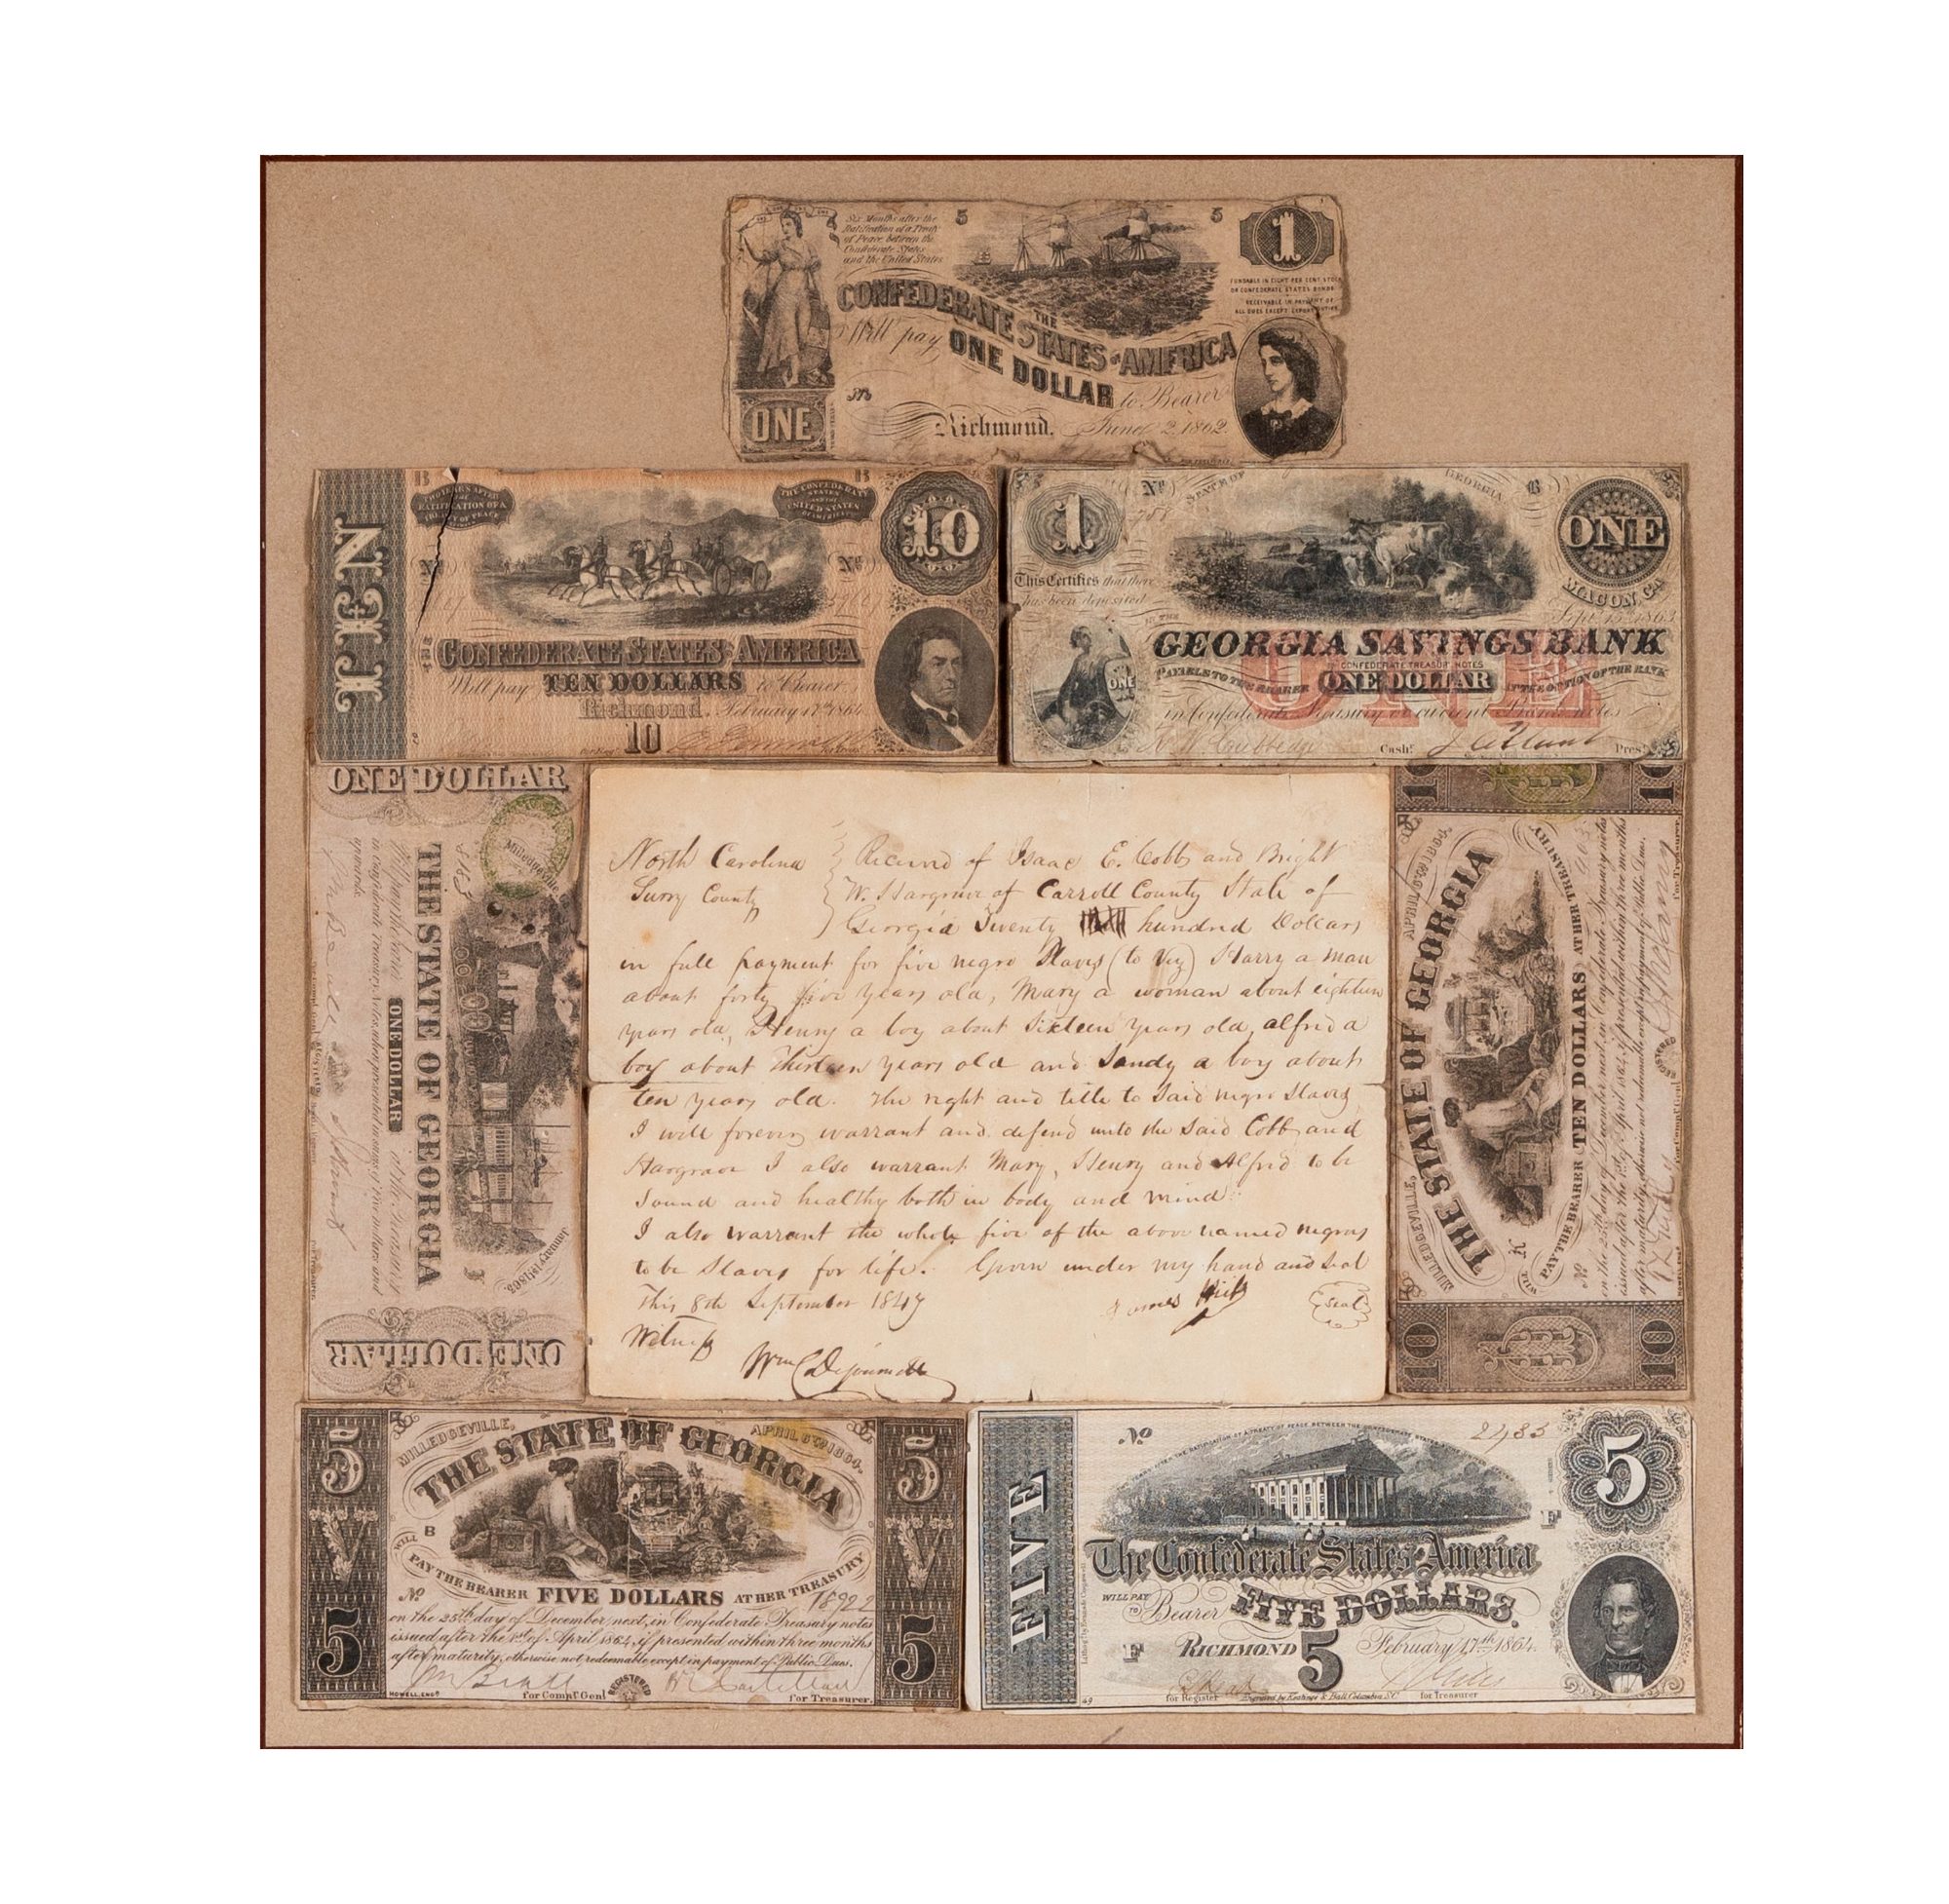 Six Months after the
Ratification of a Treaty
of Peace between the
Confederate States
and the United States
5
5
1
FUNDABLE IN EIGHT PER CENT STOCK
OR CONFEDERATE STATES BONDS
RECEIVABLE IN PAYMENT OF
ALL DUES EXCEPT EXPORT DUTIES
THE
CONFEDERATE STATES OF AMERICA
Will pay ONE DOLLAR to Bearer
No
ONE
Richmond, June 2, 1862.
B
B
TWO YEARS AFTER
RATIFICATION OF A
TREATY OF PEACE
THE CONFEDERATE
STATES
AND THE
UNITED STATES
OF AMERICA
TEN
10
No
No
THE
CONFEDERATE STATES OF AMERICA
Will pay TEN DOLLARS to Bearer
Richmond, February 17th 1864
10
1
No
STATE OF
GEORGIA
B
ONE
MACON, GA
This Certifies that there
has been deposited
IN THE
Sept. 1863
GEORGIA SAVINGS BANK
CONFEDERATE TREASURY NOTES
PAYABLE TO THE BEARER ONE DOLLAR AT THE OPTION OF THE BANK
ONE
in Confederate Treasury or current Bank notes
ONE
Cash!
Pres!
ONE DOLLAR
Milledgeville
THE STATE OF GEORGIA
Will pay the bearer ONE DOLLAR at the Treasury
in Confederate Treasury Notes, when presented in sums of Five Dollars and
upwards.
January 1st 1863.
ONE DOLLAR
North Carolina
Surry County
Received of Isaac E. Cobb and Bright
W. Hargrave of Carroll County State of
Georgia Twenty hundred Dollars
in full payment for five negro Slaves (to Viz) Harry a man
about forty five years old, Mary a woman about eighteen
years old, Henry a boy about Sixteen years old, alfrid a
boy about Thirteen years old and Sandy a boy about
ten years old. The right and title to Said negro Slaves
I will forever warrant and defend unto the Said Cobb and
Hargrave I also warrant Mary, Henry and Alfrid to be
Sound and healthy both in body and mind.
I also warrant the whole five of the above named negros
to be Slaves for life. Given under my hand and Seal
This 8th September 1847
James
(seal)
Witness
10
10
MILLEDGEVILLE,
APRIL 6TH 1864.
THE STATE OF GEORGIA
K
WILL
PAY THE BEARER TEN DOLLARS AT HER TREASURY
No
on the 25th day of December next, in Confederate Treasury notes
issued after the 1st of April 1864, if presented within three months
after maturity, otherwise not redeemable except in payment of Public Dues.
for Compt Genl
REGISTERED
for Treasurer
10
10
5
V
5
MILLEDGEVILLE,
APRIL 6TH 1864.
THE STATE OF GEORGIA
B
WILL
PAY THE BEARER FIVE DOLLARS AT HER TREASURY
No
18922
on the 25th day of December, next, in Confederate Treasury notes
issued after the 1st of April 1864, if presented within three months
after maturity, otherwise not redeemable except in payment of Public Dues.
HOWELL, ENGR
for Compt Genl
REGISTERED
for Treasurer.
5
V
5
FIVE
No
5
F
The Confederate States of America
WILL PAY
TO Bearer FIVE DOLLARS.
F
RICHMOND 5 February 17th 1864.
for Register
Engraved by Keatinge & Ball Columbia S.C.
for Treasurer
49